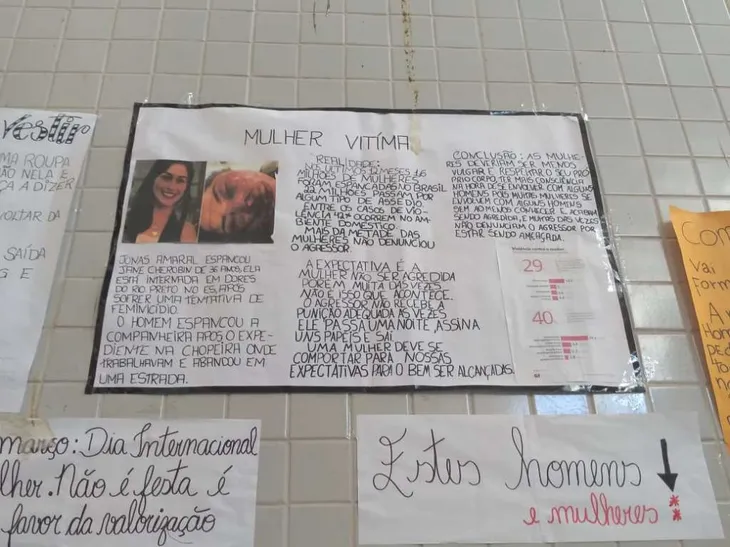 Vestir
MA ROUPA
ÃO NELA E
ÇA A DIZER
VOLTAR DA
SAÍDA
S E
MULHER VITÍMA
JONAS AMARAL ESPANCOU
JANE CHEROBIN DE 36 ANOS, ELA
ESTÁ INTERNADA EM DORES
DO RIO PRETO NO ES APÓS
SOFRER UMA TENTATIVA DE
FEMINICÍDIO.
O HOMEM ESPANCOU A
COMPANHEIRA APÓS O EXPE-
DIENTE NA CHOPEIRA ONDE
TRABALHAVAM E ABANDOU EM
UMA ESTRADA.
REALIDADE:
NOS ÚLTIMOS 12 MESES 1,6
MILHÕES DE MULHERES
FORAM ESPANCADAS NO BRASIL
22 MILHÕES PASSAM POR
ALGUM TIPO DE ASSÉDIO
ENTRE OS CASOS DE VIO-
LÊNCIA 42% OCORREM NO AM-
BIENTE DOMÉSTICO
MAIS DA METADE DAS
MULHERES NÃO DENUNCIOU
O AGRESSOR
A EXPECTATIVA É A
MULHER NÃO SER AGREDIDA
PORÉM MUITA DAS VEZES
NÃO É ISSO QUE ACONTECE.
O AGRESSOR NÃO RECEBE A
PUNIÇÃO ADEQUADA AS VEZES
ELE PASSA UMA NOITE, ASSINA
UNS PAPEIS E SAÍ
UMA MULHER DEVE SE
COMPORTAR PARA NOSSAS
EXPECTATIVAS PARA O BEM SER ALCANÇADAS.
CONCLUSÃO: AS MULHE-
RES DEVERIAM SER MENOS
VULGAR E RESPEITAR O SEU PRÓ
PRIO CORPO, TER MAIS CONSCIÊNCIA
NA HORA DE SE ENVOLVER COM ALGUNS
HOMENS POIS MUITAS MULHERES SE
ENVOLVEM COM ALGUNS HOMENS
SEM AO MENOS CONHECER E ACABAM
SENDO AGREDIDA, E MUITAS DAS VEZES
NÃO DENUNCIAM O AGRESSOR POR
ESTAR SENDO AMEAÇADA.
Violência contra a mulher
29
40
Com
Vai
Form
A
Hom
ped
to
março: Dia Internacional
lher. Não é festa é
favor da valorização
Estes homens
e mulheres **